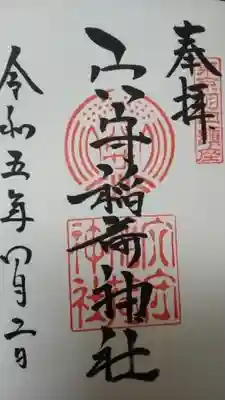 奉拝
穴守稲荷神社
穴守
稲荷
神社
令和五年四月二日